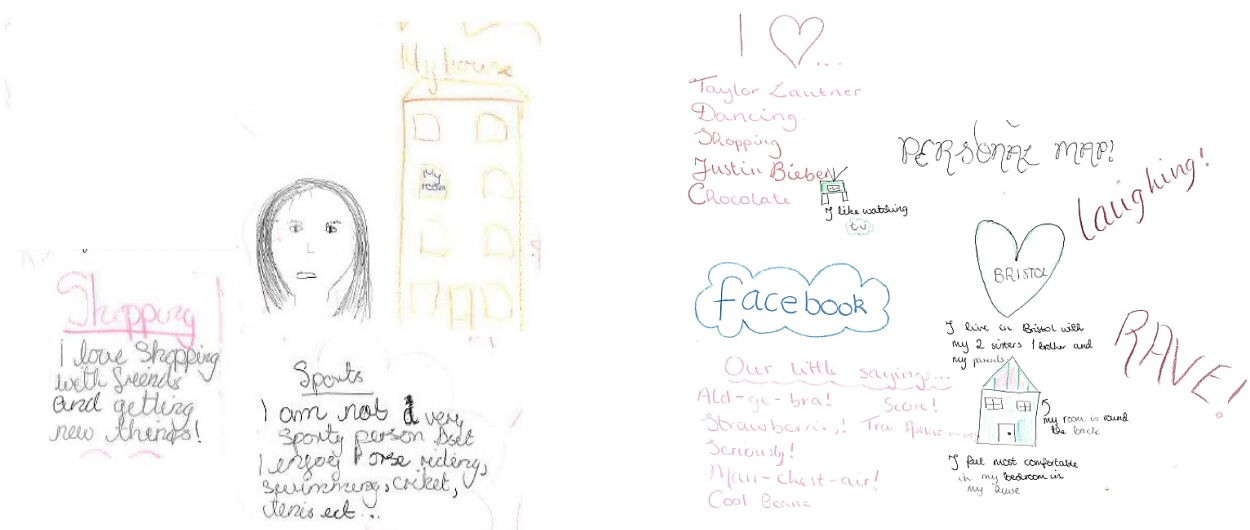 My house
My
room
Shopping
I love Shopping
with friends
and getting
new things!
Sports
I am not a very
sporty person but
I enjoy horse riding,
swimming, cricket,
tenis ect...
I ...
Taylor Lautner
Dancing
Shopping
Justin Bieber
Chocolate
I like watching
tv
PERSONAL MAP!
laughing!
BRISTOL
facebook
I live in Bristol with
my 2 sisters 1 brother and
my parents
RAVE!
Our little sayings...
Ald-ge-bra! Score!
Strawberries!
Seriously!
Man-chest-air!
Cool Beans
my room is round
the back
I feel most comfortable
in my bedroom in
my house